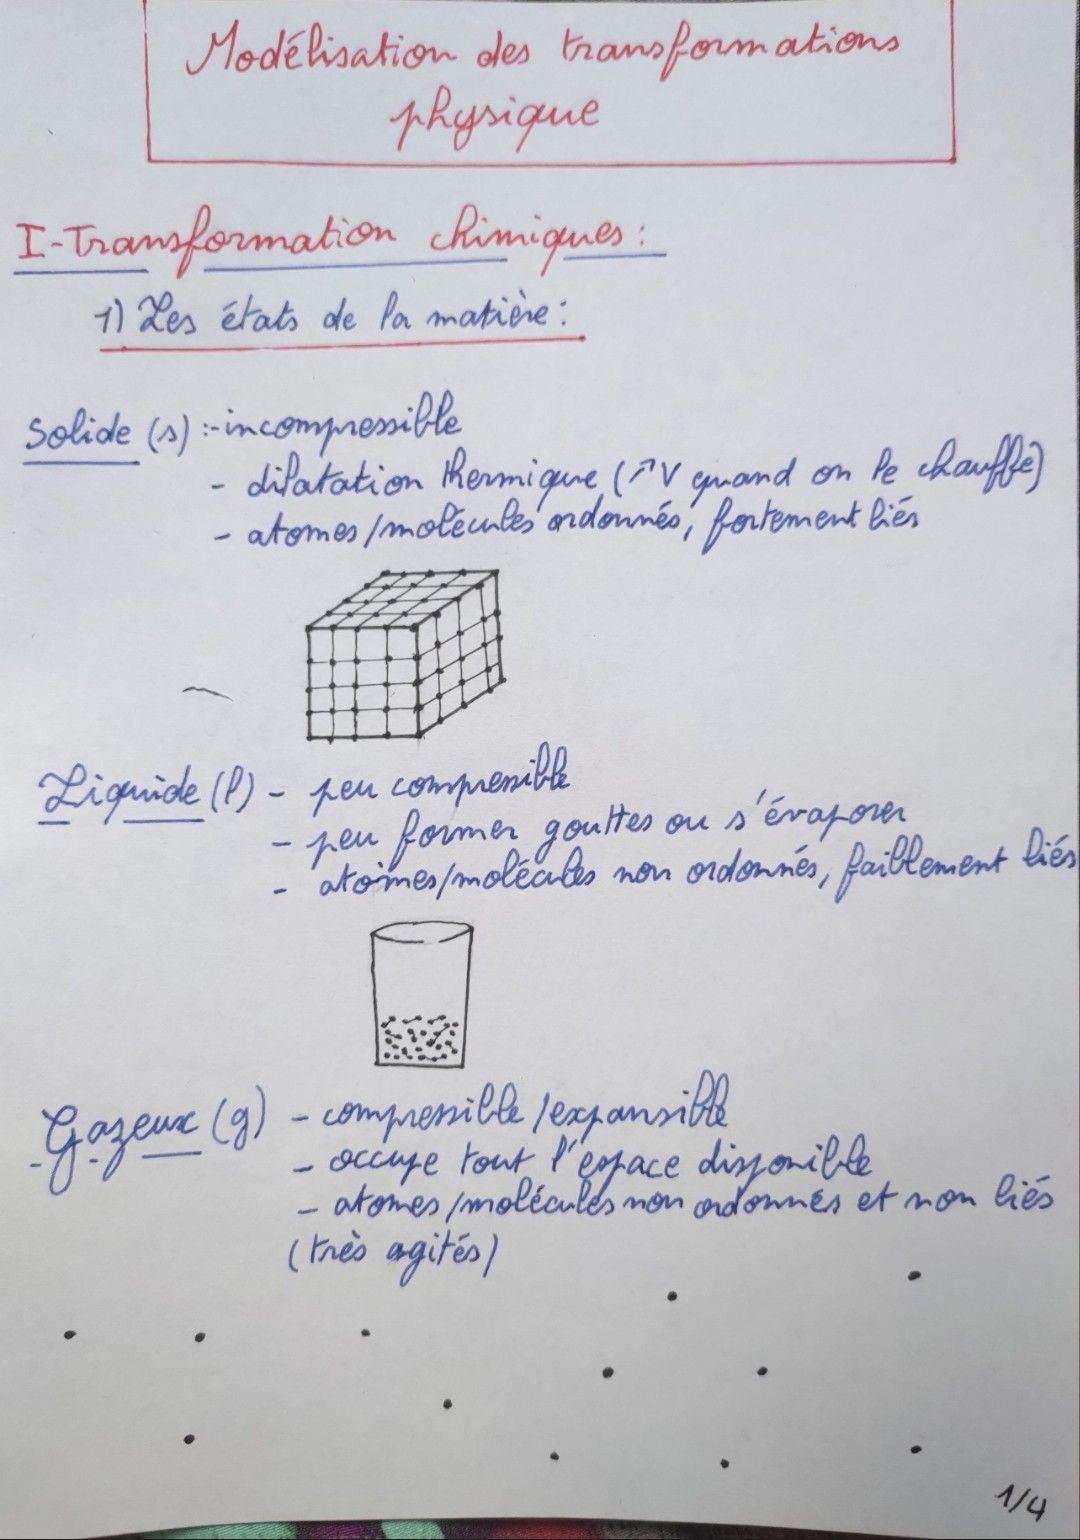 Modélisation des transformations
physique
I-Transformation chimiques :
1) Les états de la matière :
Solide (s) :-incompressible
- dilatation thermique (↗V quand on le chauffe)
- atomes/molécules ordonnés, fortement liés
Liquide (l) - peu compressible
- peu former gouttes ou s'évaporer
- atomes/molécules non ordonnés, faiblement liés
Gazeux (g) - compressible/expansible
- occupe tout l'espace disponible
- atomes/molécules non ordonnés et non liés
(très agités)
1/4